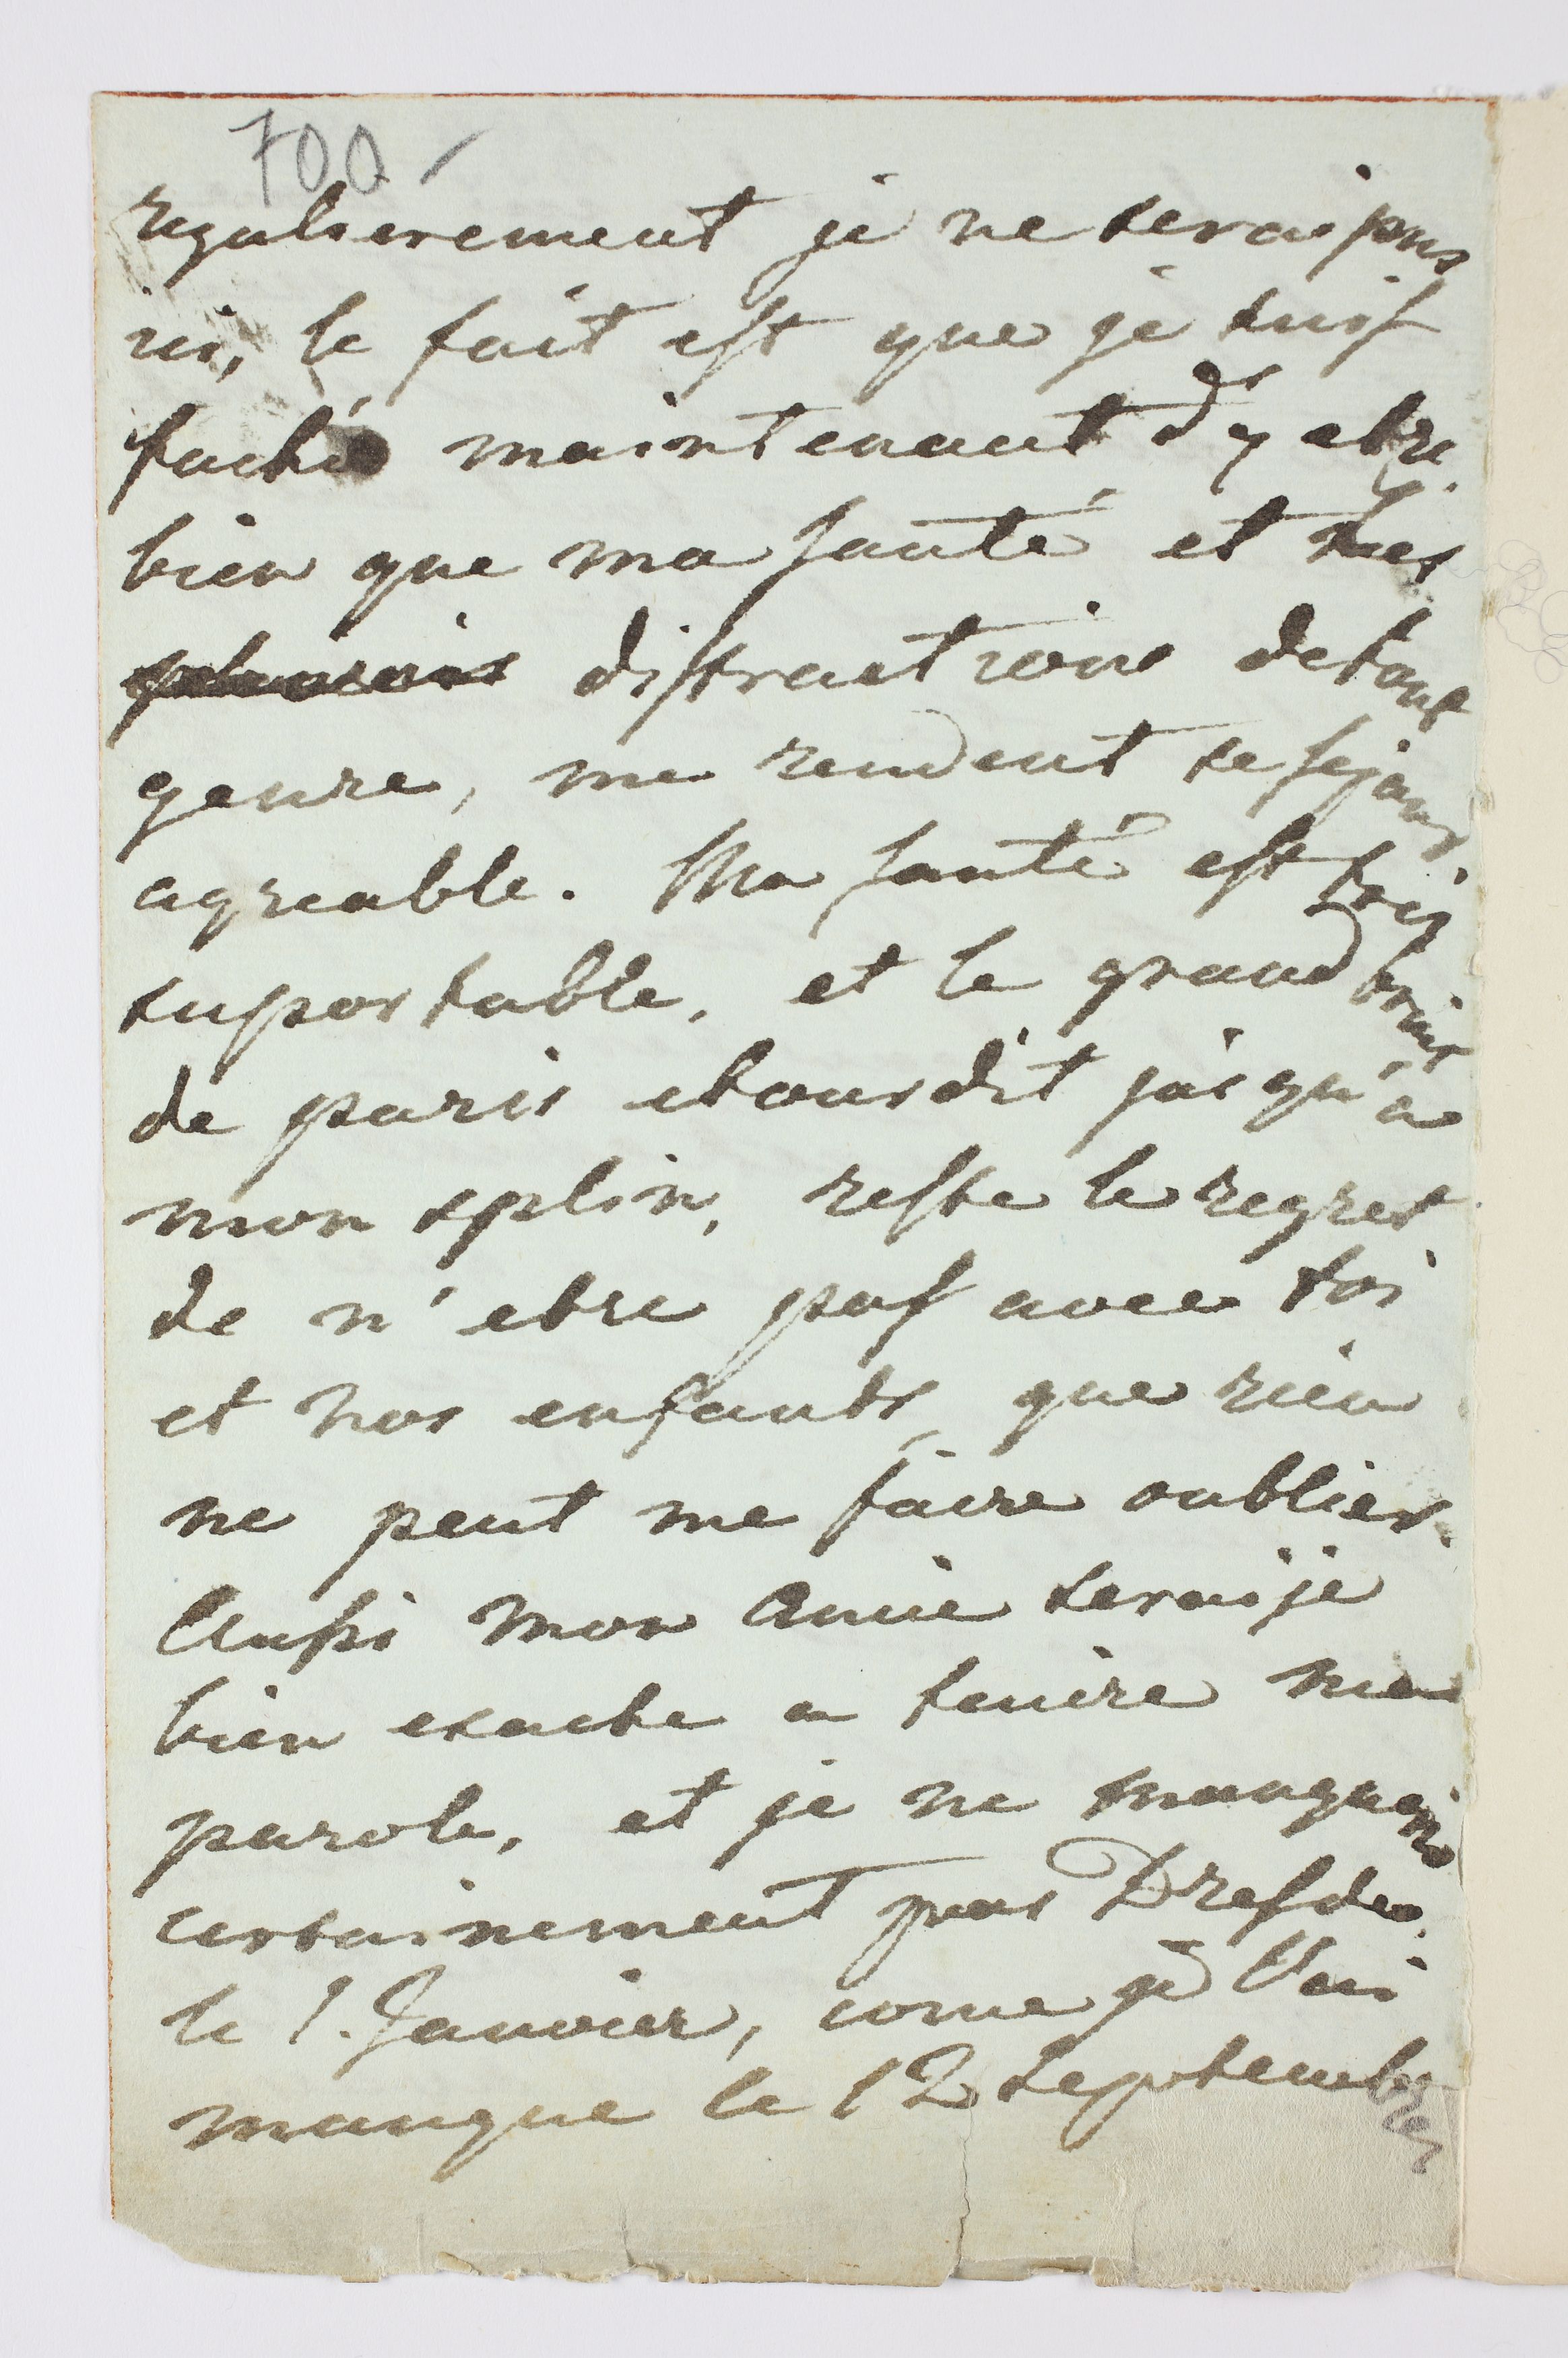 700 -
regulierement je ne serais pas
ici, le fait est que je suis
faché maintenant d'y etre.
bien que ma santé et les
distractions de tout
genre, me rendent ce sejour
agreable. Ma santé est tres
suportable, et le grand bruit
de paris etourdit jusqu'a
mon splin, reste le regret
de n'etre pas avec toi
et nos enfants, que rien
ne peut me faire oublier.
Aussi mon Amie serai je
bien exacte a tenire ma
parole, et je ne manquerai
certainement pas Dresde
le 1. Janvier, come je l'ai
manque le 12 Septembre